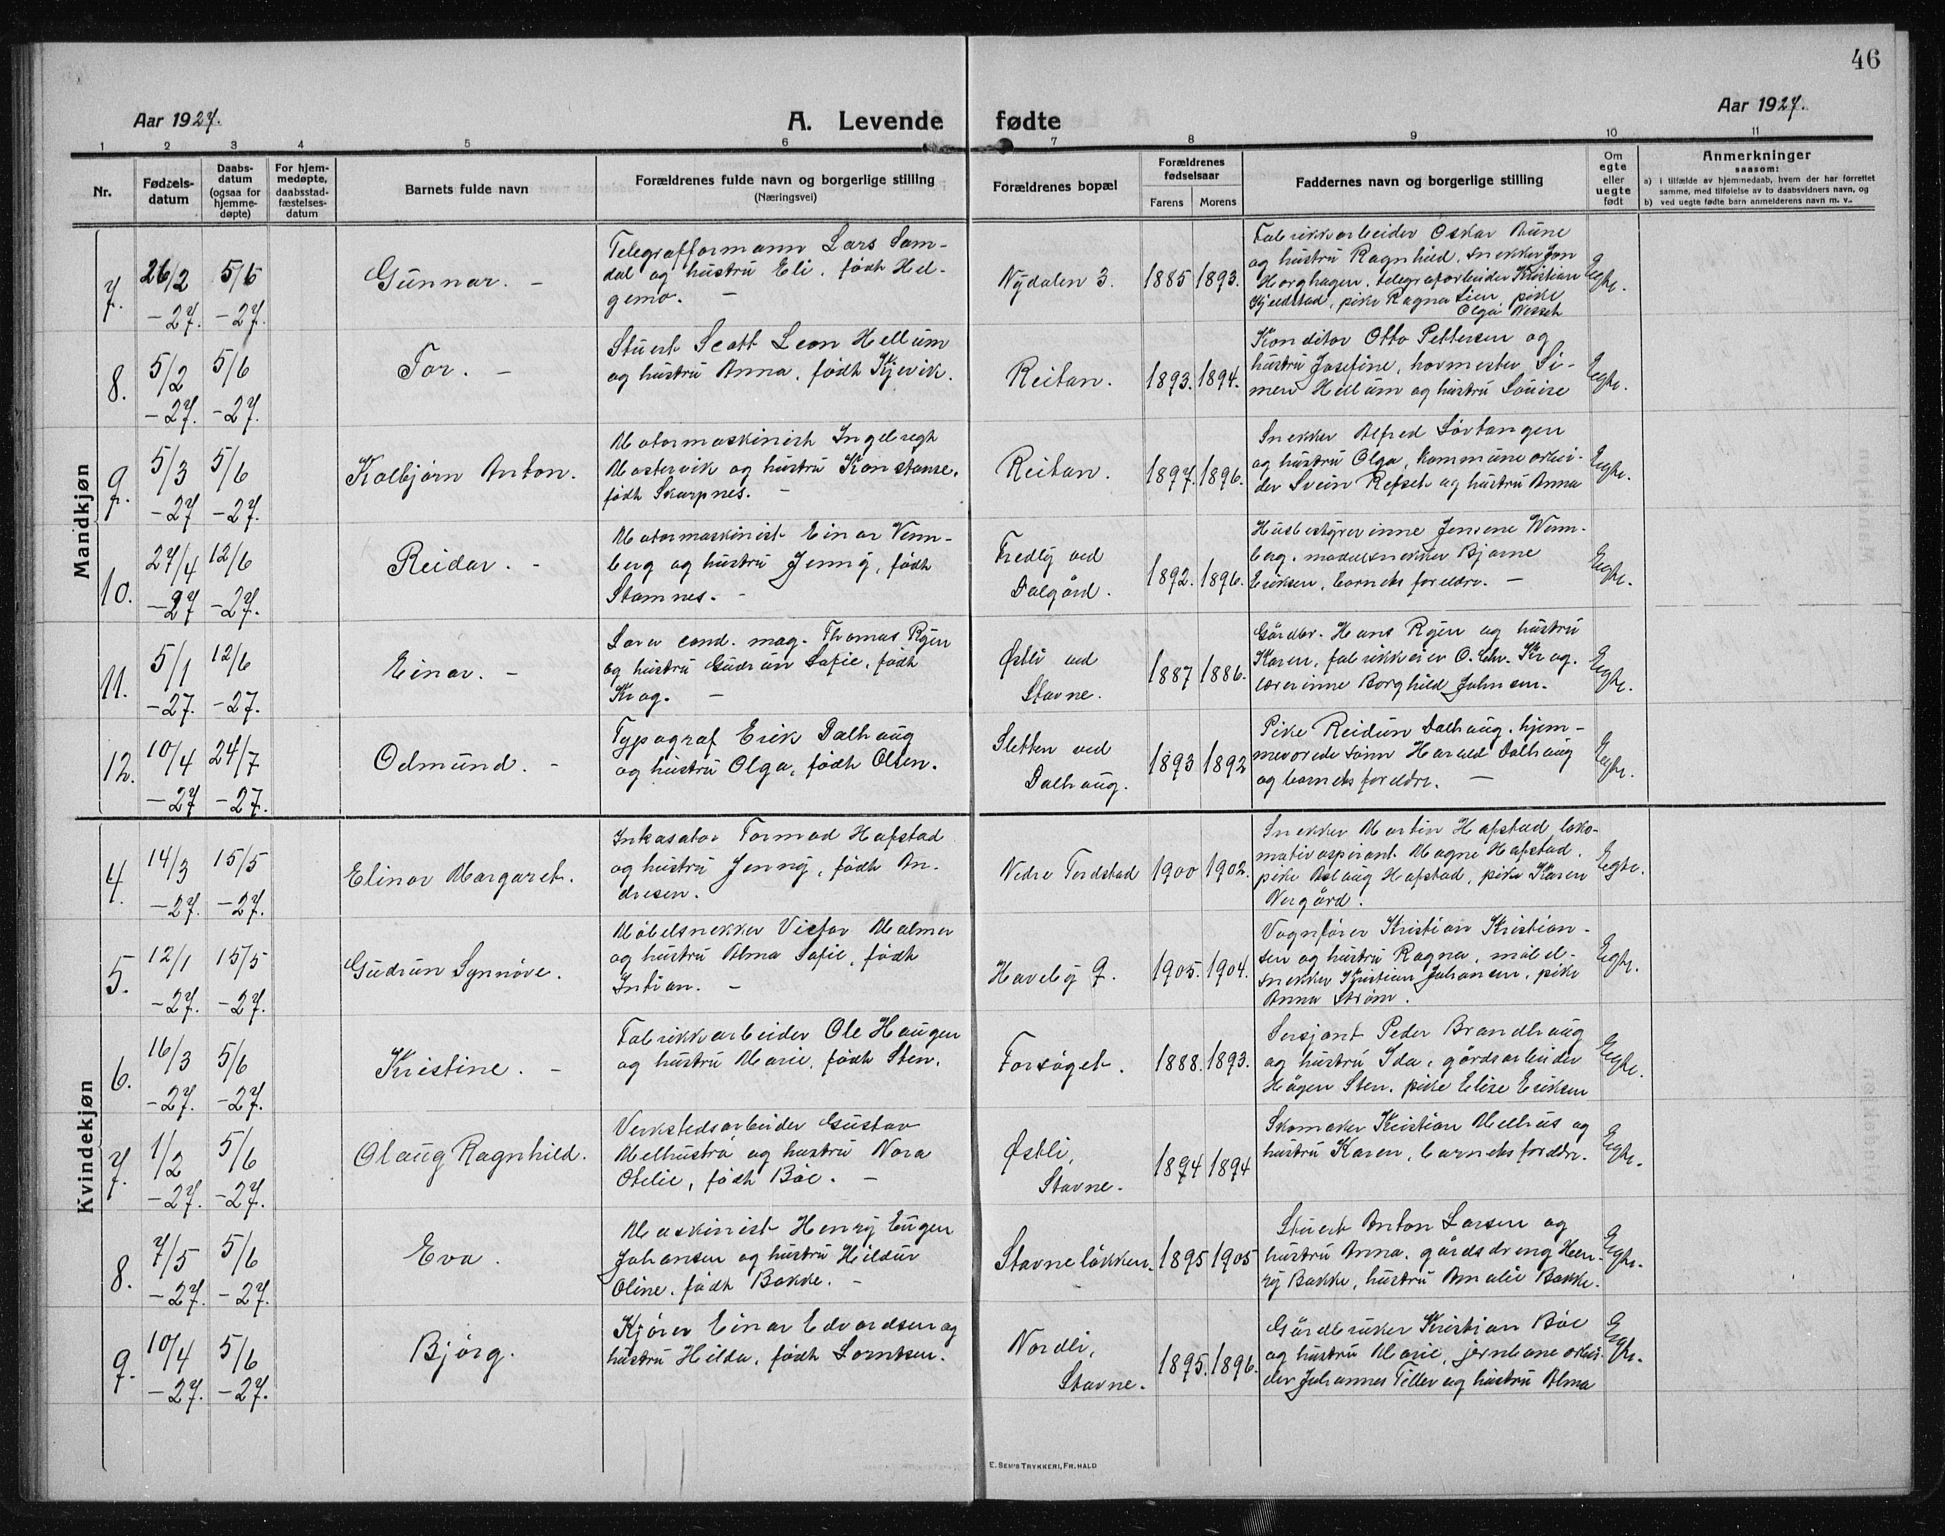 46
Aar 1927.
A. Levende fødte
Aar 1927.
1 2 3 4 5 6 7 8 9 10 11
Nr.
Fødsels-
datum
Daabs-
datum
(ogsaa for
hjemme-
døpte)
For hjem-
medøpte,
daabsstad-
fæstelses-
datum
Barnets fulde navn
Forældrenes fulde navn og borgerlige stilling
(Næringsvei)
Forældrenes bopæl
Forældrenes
fødselsaar
Farens Morens
Faddernes navn og borgerlige stilling
Om
egte
eller
uegte
født
Anmerkninger
saasom:
a) i tilfælde av hjemmedaab, hvem der har forrettet
samme, med tilføielse av to daabsvidners navn, og
b) ved uegte fødte barn anmelderens navn m. v.
Mandkjøn
7. 26/2 -27. 5/6 -27.
Gunnar. -
Telegrafformann Lars Sam-
dal og hustru Eli, født Hel-
gemo. -
Nydalen 3. 1885 1893.
Fabrikkarbeider Oskar Aune
og hustru Ragnhild, snekker Jon
Horghagen, telegrafarbeider Kristian
Kjeldstad, pike Ragna Lien, pike
Olga
Egte.
8. 5/2 -27. 5/6 -27.
Tor. -
Stuert Scott Leon Hellum
og hustru Anna, født Kjevik.
Reitan. 1893. 1894.
Konditor Otto Pettersen og
hustru Josefine, hovmester Si-
men Hellum og hustru Louise
Egte.
9. 5/3 -27 5/6 -27.
Kolbjørn Anton.
Motormaskinist Ingebregt
Mostervik og hustru Konstanse,
født Skarpnes. -
Reitan. 1897. 1896.
Snekker Alfred Sørtangen
og hustru Olga, kommunearbei-
der Svein Refset og hustru Anna
Egte.
10. 27/4 -27 12/6 -27.
Reidar. -
Motormaskinist Einar Venn-
berg og hustru Jenny, født
Stamnes. -
Fredly ved
Dalgård. 1892. 1896.
Husbestyrerinne Jensine Wenn-
berg, modellsnekker Bjarne
Eriksen, barnets foreldre. -
Egte.
11. 5/1 -27. 12/6 -27.
Einar. -
Lærer cand. mag. Thomas Ryen
og hustru Gudrun Sofie, født
Krog. -
Østli ved
Stavne. 1887 1886.
Gårdbr. Hans Ryen og hustru
Karen, fabrikkeier O. Chr. Krog,
lærerinne Borghild Johnsen.
Egte.
12. 10/4 -27 24/7 -27.
Odmund. -
Typograf Erik Dalhaug
og hustru Olga, født Olsen.
Sletten ved
Dalhaug. 1893 1892
Pike Reidun Dalhaug, hjem-
meværende sønn Harald Dalhaug
og barnets foreldre. -
Egte.
Kvindekjøn
4. 14/3 -27. 15/5 -27.
Elinor Margaret.
Inkasator Tormod Hafstad
og hustru Jenny, født An-
dresen.
Nedre Ferstad 1900 1902.
Snekker Martin Hafstad, loko-
motivaspirant Magne Hafstad,
pike Aslaug Hafstad, pike Karen
Vergård.
Egte.
5. 12/1 -27. 15/5 -27.
Gudrun Synnøve.
Møbelsnekker Victor Malmer
og hustru Alma Sofie, født
Intian. -
Haveby 9. 1905. 1904.
Vognfører Kristian Kristian-
sen og hustru Ragna, møbel-
snekker Kristian Johansen, pike
Anna Strøm.
Egte.
6. 16/3 -27. 5/6 -27.
Kristine. -
Fabrikkarbeider Ole Haugen
og hustru Marie, født Sten.
Forsøget. 1888. 1893.
Sersjant Peder Brandhaug
og hustru Ida, gårdsarbeider
Hågen Sten, pike Elise Eriksen
Egte.
7. 1/2 -27. 5/6 -27.
Olaug Ragnhild.
Verkstedsarbeider Gustav
Melhustrå og hustru Nora
Otelie, født Böe. -
Østli,
Stavne. 1894 1894
Skomaker Kristian Melhus og
hustru Karen, barnets foreldre.
Egte.
8. 7/5 -27. 5/6 -27.
Eva.
Maskinist Henry Eugen
Johansen og hustru Hildur
Oline, født Bakke. -
Stavneløkken. 1895 1905
Stuert Anton Larsen og
hustru Anna, gårdsdreng Hen-
ry Bakke, hustru Amalie Bakke.
Egte.
9. 10/4 -27. 5/6 -27.
Bjørg.
Kjører Einar Edvardsen og
hustru Hilda, født Lorntsen.
Nordli,
Stavne. 1895. 1896.
Gårdbruker Kristian Böe
og hustru Marie, jernbanearbei-
der Johannes Tiller og hustru Alma
Egte.
E. SEM'S TRYKKERI, FR.HALD